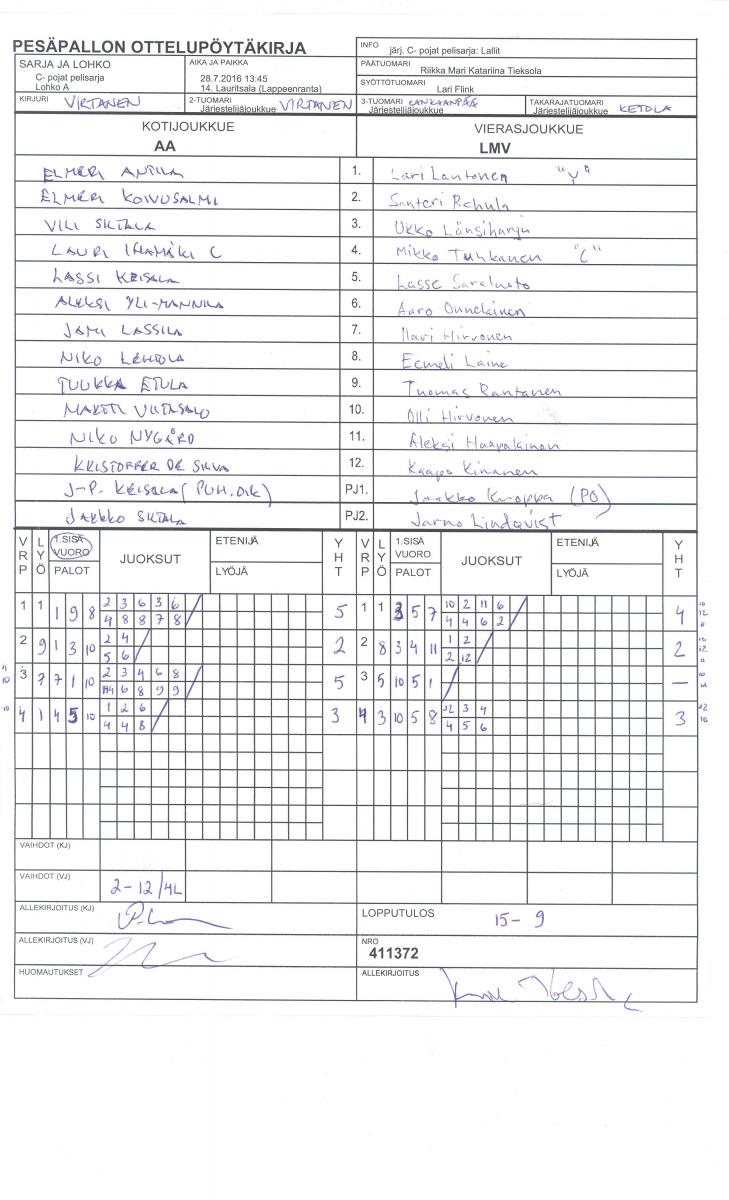 PESÄPALLON OTTELUPÖYTÄKIRJA
INFO järj. C- pojat pelisarja: Lallit
SARJA JA LOHKO
C- pojat pelisarja
Lohko A
AIKA JA PAIKKA
28.7.2016 13:45
14. Lauritsala (Lappeenranta)
PÄÄTUOMARI
Riikka Mari Katariina Tieksola
SYÖTTÖTUOMARI
Lari Flink
KIRJURI VIRTANEN
2-TUOMARI
Järjestelijäjoukkue VIRTANEN
3-TUOMARI KANKAANPÄÄ
Järjestelijäjoukkue
TAKARAJATUOMARI
Järjestelijäjoukkue KETOLA
KOTIJOUKKUE VIERASJOUKKUE
AA LMV
ELMERI ANTILA 1. Lari Lautonen "Y"
ELMERI KOIVUSALMI 2. Santeri Rehula
VILI SILTALA 3. Ukko Länsiharju
LAURI IHAMÄKI C 4. Mikko Tuhkanen "C"
LASSI KEISALA 5. Lasse Saraluoto
ALEKSI YLI-MANNILA 6. Aaro Onnelainen
JAMI LASSILA 7. Ilari Hirvonen
NIKO LEHTOLA 8. Eemeli Laine
TUUKKA ETULA 9. Tuomas Rantanen
MARTTI VIITASALO 10. Olli Hirvonen
NIKO NYGÅRD 11. Aleksi Haapalainen
KRISTOFFER DE SILVA 12. Kaapo Kinanen
J-P. KEISALA (PUH.OIK) PJ1. Jaakko Knoppa (PO)
JARKKO SILTALA PJ2. Jarno Lindqvist
VRP LYÖ 1.SISÄ VUORO PALOT JUOKSUT ETENIJÄ LYÖJÄ YHT VRP LYÖ 1.SISÄ VUORO PALOT JUOKSUT ETENIJÄ LYÖJÄ YHT
1 1 1 9 8 2 3 6 3 6 / 5 1 1 3 5 7 10 2 11 6 / 4
4 8 8 7 8 4 4 6 2
2 9 1 3 10 2 4 / 2 2 8 3 4 11 1 2 / 2
5 6 2 12
3 7 7 1 10 2 3 4 6 8 / 5 3 5 10 5 1 / —
4 6 8 9 9
4 1 4 5 10 1 2 6 / 3 4 3 10 5 8 12 3 4 3
4 4 8 4 5 6
VAIHDOT (KJ)
VAIHDOT (VJ)
2-12/4L
ALLEKIRJOITUS (KJ)
LOPPUTULOS 15-9
ALLEKIRJOITUS (VJ)
NRO
411372
HUOMAUTUKSET
ALLEKIRJOITUS